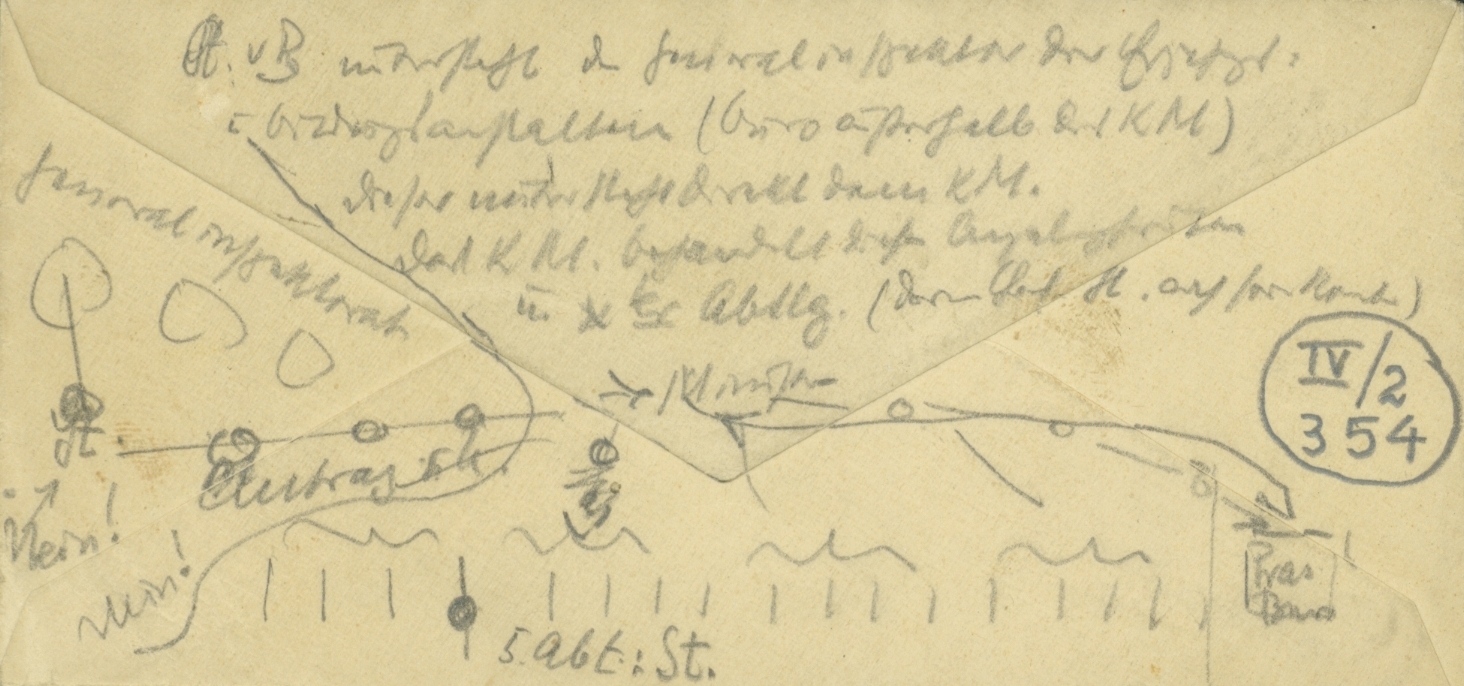 St. v B untersteht d Generalinspektor der Erziehgs-
u. Bildungsanstalten (Büro außerhalb des KM)
dieser untersteht direkt dem KM.
Das KM. behandelt diese Angelegenheiten
in x ter Abtlg. (
Generalinspektorat
Minister
IV/2
354
St.
Antrag St.
Nein!
Nein!
Präs
Büro
5. Abt.: St.